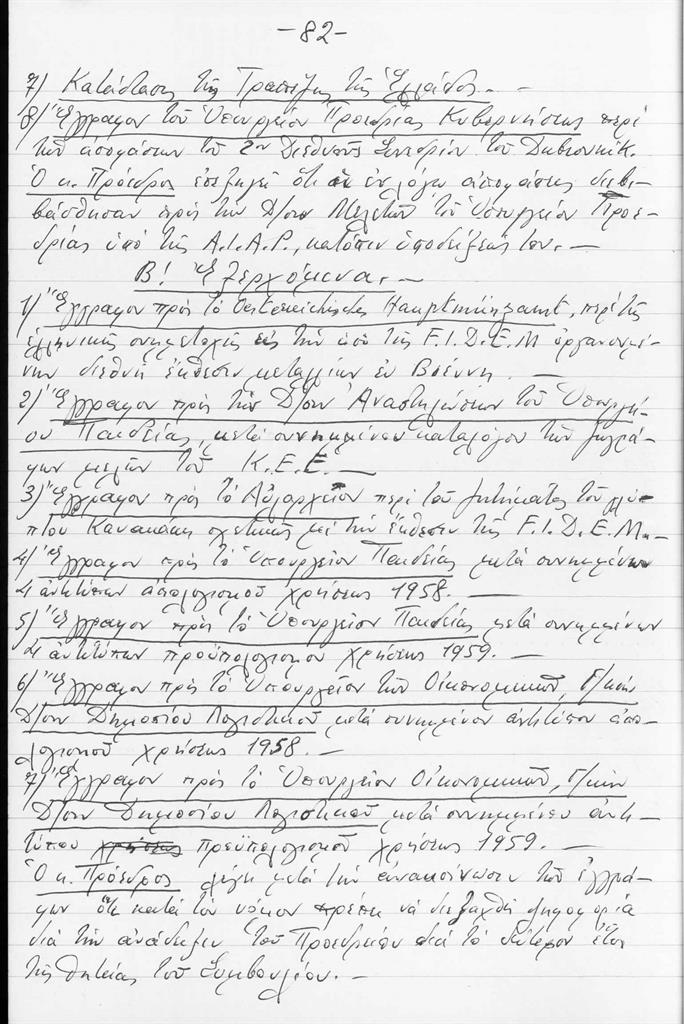 -82-
7) Κατάστασις τῆς Τραπέζης τῆς Ἑλλάδος. —
8) Ἔγγραφον τοῦ Ὑπουργείου Προεδρίας Κυβερνήσεως περὶ
τῶν ἀποφάσεων τοῦ 2ου Διεθνοῦς Συνεδρίου τοῦ Ντουμπρόβνικ.
Ὁ κ. Πρόεδρος ἐπεξηγεῖ ὅτι αἱ ἐν λόγῳ ἀποφάσεις διεβι-
βάσθησαν πρὸς τὴν Δ/σιν Μελετῶν τοῦ Ὑπουργείου Προε-
δρίας ὑπὸ τῆς A.I.A.P., κατόπιν ὑποδείξεώς του. —
Β! Ἐξερχόμενα. —
1) Ἔγγραφον πρὸς τὸ Oesterreichisches Hauptmünzamt, περὶ τῆς
ἑλληνικῆς συμμετοχῆς εἰς τὴν ὑπὸ τῆς F.I.D.E.M ὀργανουμέ-
νην διεθνῆ ἔκθεσιν μεταλλίων ἐν Βιέννῃ. —
2) Ἔγγραφον πρὸς τὴν Δ/σιν Ἀναστηλώσεων τοῦ Ὑπουργεί-
ου Παιδείας, μετὰ συνημμένου καταλόγου τῶν ζωγρά-
φων μελῶν τοῦ Κ.Ε.Ε. —
3) Ἔγγραφον πρὸς τὸ Αὐλαρχεῖον περὶ τοῦ ζητήματος τοῦ γλύ-
πτου Κανακάκη σχετικῶς μὲ τὴν ἔκθεσιν τῆς F.I.D.E.M. -
4) Ἔγγραφον πρὸς τὸ Ὑπουργεῖον Παιδείας μετὰ συνημμένων
4 ἀντιτύπων ἀπολογισμοῦ χρήσεως 1958. —
5) Ἔγγραφον πρὸς τὸ Ὑπουργεῖον Παιδείας μετὰ συνημμένων
4 ἀντιτύπων προϋπολογισμοῦ χρήσεως 1959. —
6) Ἔγγραφον πρὸς τὸ Ὑπουργεῖον τῶν Οἰκονομικῶν, Γ/κὴν
Δ/σιν Δημοσίου Λογιστικοῦ μετὰ συνημμένου ἀντιτύπου ἀπο-
λογισμοῦ χρήσεως 1958. —
7) Ἔγγραφον πρὸς τὸ Ὑπουργεῖον Οἰκονομικῶν, Γ/κὴν
Δ/σιν Δημοσίου Λογιστικοῦ μετὰ συνημμένου ἀντι-
τύπου χρήσεως προϋπολογισμοῦ χρήσεως 1959. —
Ὁ κ. Πρόεδρος λέγει μετὰ τὴν ἀνακοίνωσιν τῶν ἐγγρά-
φων ὅτι κατὰ τὸν νόμον πρέπει νὰ διεξαχθῇ ψηφοφορία
διὰ τὴν ἀνάδειξιν τοῦ Προεδρείου διὰ τὸ δεύτερον ἔτος
τῆς θητείας τοῦ Συμβουλίου. —